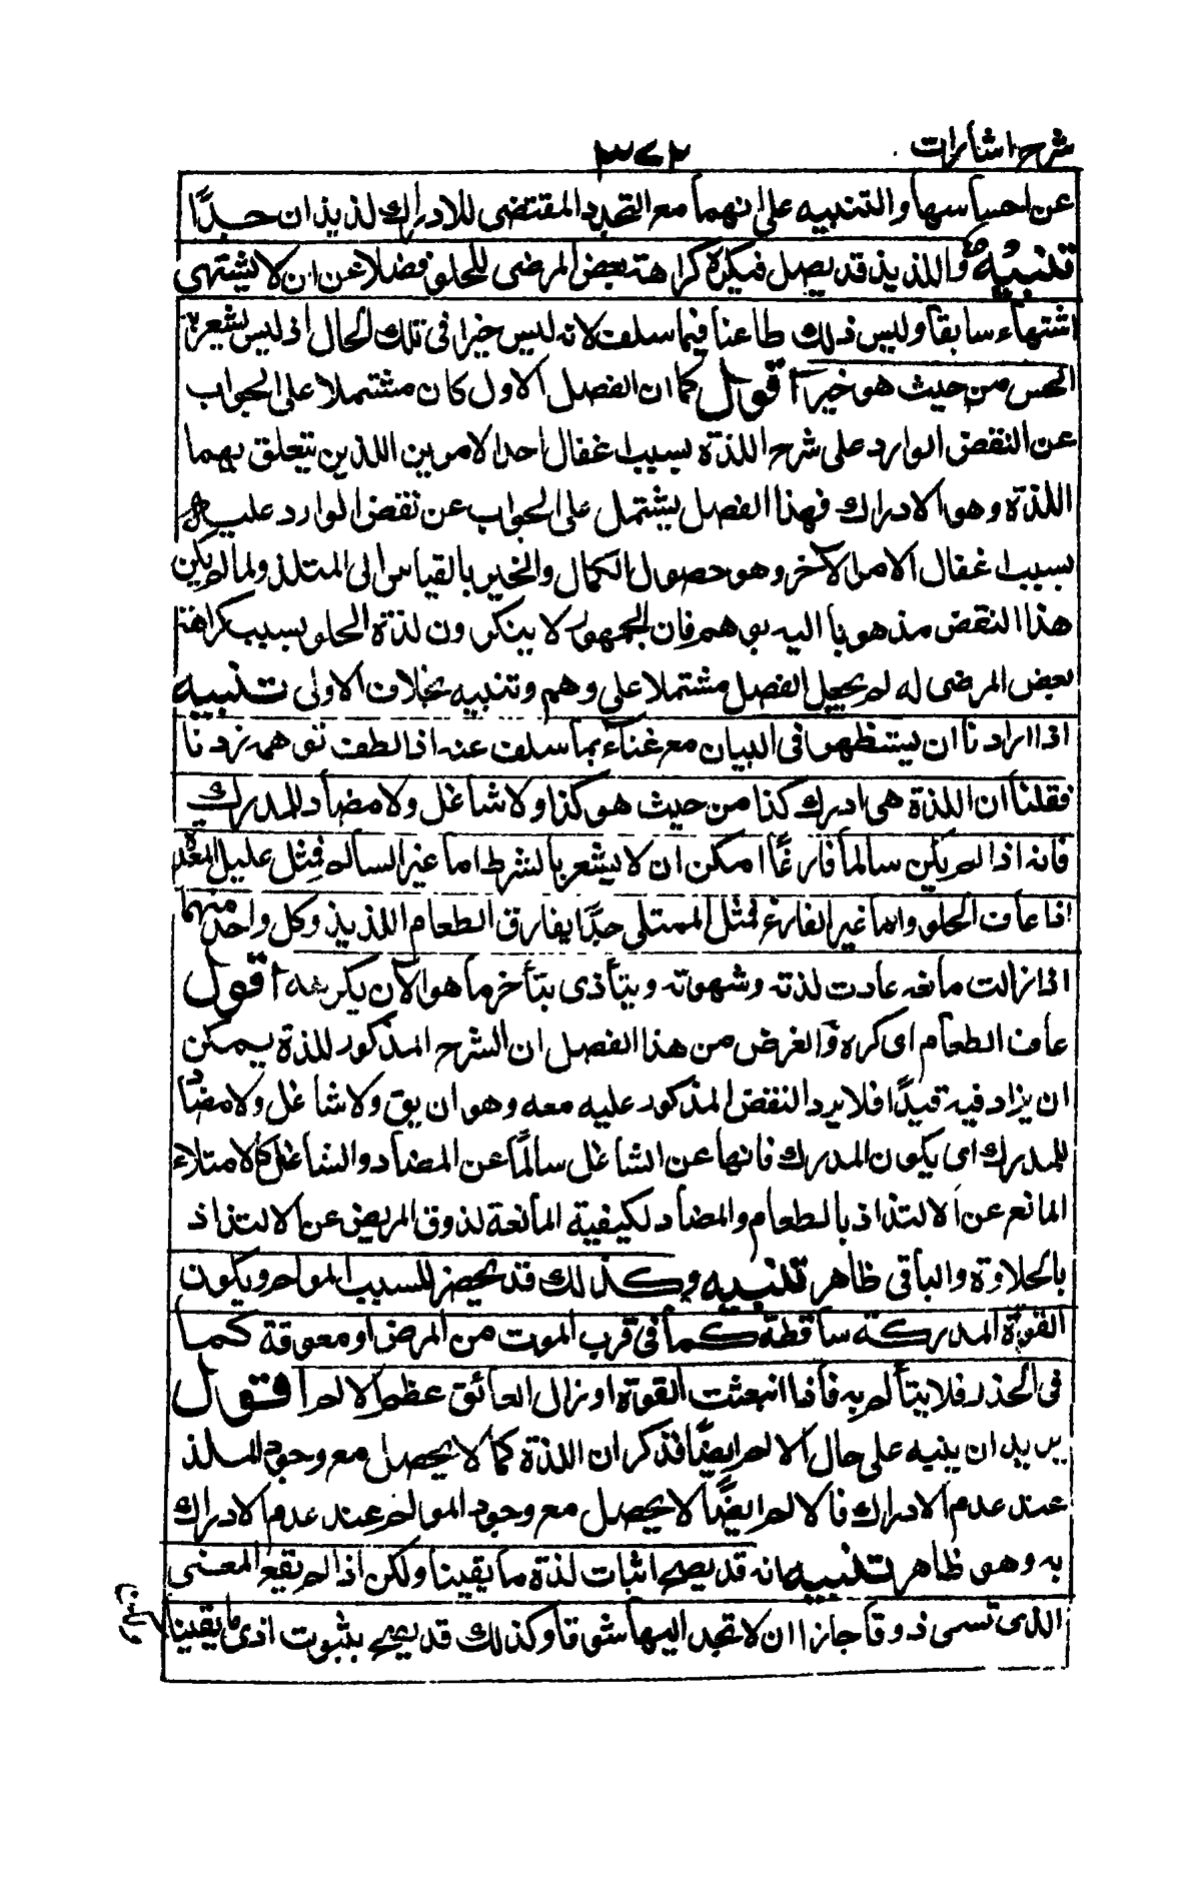 شرح اشارات
٣٧٢
عن احساسها والتنبيه على انهما مع التجدد المقتضى للادراك لذيذان جدًّا
تنبيه واللذيذ قد يصل فيكره كراهته بعض المرضى للحلو فضلا عن ان لا يشتهى
اشتهاء سابقا وليس ذلك طاعنا فيما سلف لانه ليس خيرا فى تلك الحال اذ ليس يشعر به
الحس من حيث هو خير اقول كما ان الفصل الاول كان مشتملا على الجواب
عن النقض الوارد على شرح اللذة بسبب اغفال احد الامرين اللذين يتعلق بهما
اللذة وهو الادراك فهذا الفصل يشتمل على الجواب عن نقض الوارد عليه
بسبب اغفال الامر الآخر وهو حصول الكمال والخير بالقياس الى المتلذ ولما لم يكن
هذا النقض مذهوبا اليه بوهم فان الجمهور لا ينكرون لذة الحلو بسبب كراهة
بعض المرضى له لم يجعل الفصل مشتملا على وهم وتنبيه بخلاف الاولى تنبيه
اذا اردنا ان يستظهر فى البيان مع غناء بما سلف عنه اذا لطف توهمه زدنا
فقلنا ان اللذة هى ادراك كذا من حيث هو كذا ولا شاغل ولا مضاد للمدرك
فانه اذا لم يكن سالما فارغًا امكن ان لا يشعر بالشرط اما غير السالم فمثل عليل المعدة
اذا عاف الحلو واما غير الفارغ فمثل الممتلى جدًّا يفارق الطعام اللذيذ وكل واحد منهما
اذا زالت مانعه عادت لذته وشهوته ويتأذى بتأخر ما هو الآن يكرهه اقول
عاف الطعام اى كره والغرض من هذا الفصل ان الشرح المذكور للذة يمكن
ان يزاد فيه قيدًا فلا يرد النقض المذكور عليه معه وهو ان يق ولا شاغل ولا مضاد
للمدرك اى يكون المدرك فانها عن الشاغل سالمًا عن المضاد والشاغل كالامتلاء
المانع عن الالتذاذ بالطعام والمضاد لكيفية المانعة لذوق المريض عن الالتذاذ
بالحلاوة والباقى ظاهر تنبيه وكذلك قد يحضر للسبب المولم ويكون
القوة المدركة ساقطة كما فى قرب الموت من المرض او معوقة كما
فى الخدر فلا يتألم به فاذا انبعثت القوة او زال العائق عظم الالم اقول
يريد ان ينبه على حال الالم ايضًا فذكر ان اللذة كما لا يحصل مع وجود الملذ
عند عدم الادراك فالالم ايضًا لا يحصل مع وجود المولم عند عدم الادراك
به وهو ظاهر تنبيه انه قد يصح اثبات لذة ما يقينا ولكن اذا لم يقع المعنى
الذى تسمى ذوقا جاز ان لا تجد اليها شوقا وكذلك قد يصح بثبوت اذى ما يقينا